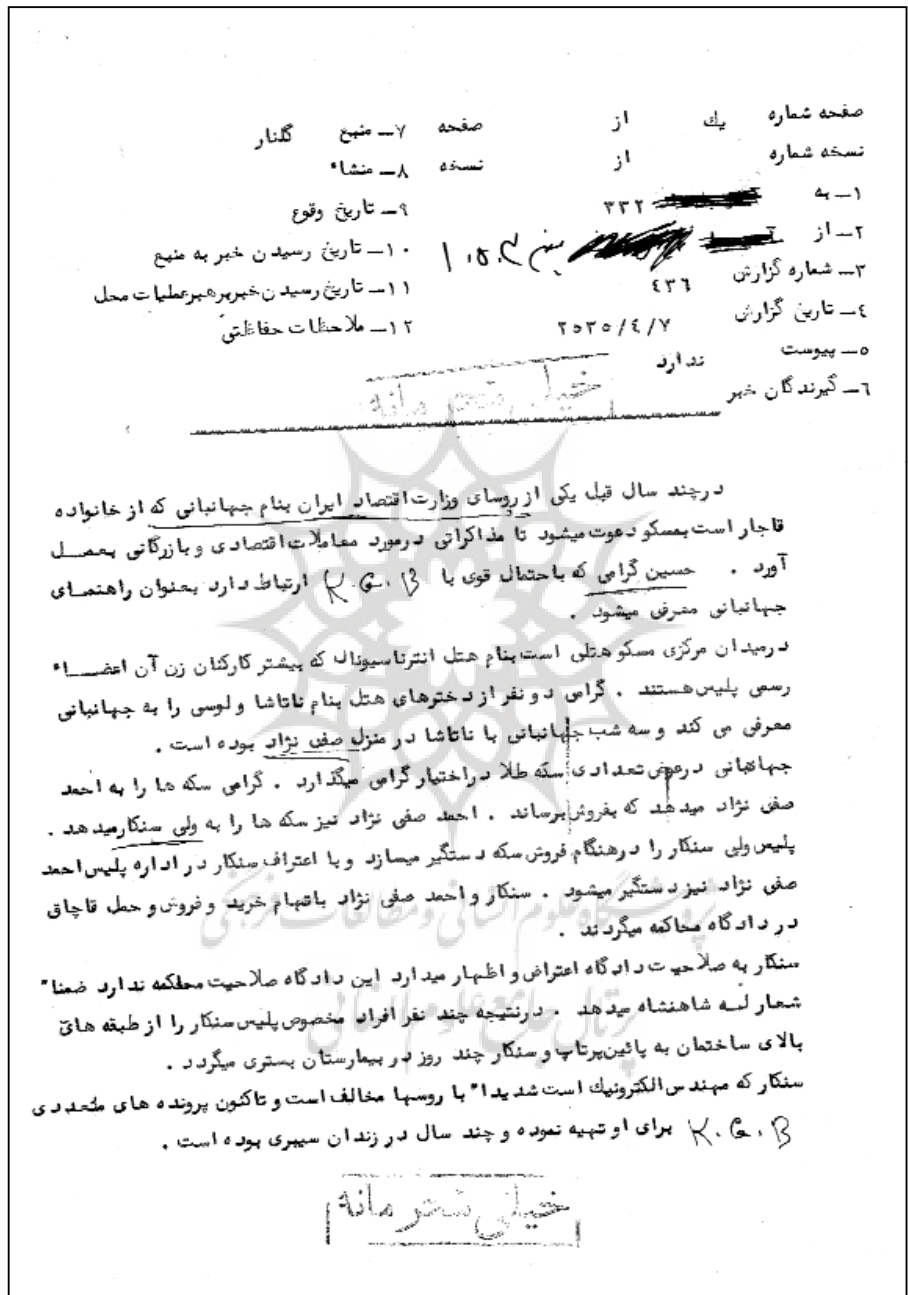 صفحه شماره یك از صفحه ۷ــ منبع گلنار
نسخه شماره از نسخه ۸ــ منشاء
۱ــ به ۳۳۲ ۹ــ تاریخ وقوع
۲ــ از ۱۰ــ تاریخ رسیدن خبر به منبع
۳ــ شماره گزارش ٤۳٦ ۱۱ــ تاریخ رسیدن خبربرهبرعملیات محل
٤ــ تاریخ گزارش ۲۵۳۵/٤/۷ ۱۲ــ ملاحظات حفاظتی
۵ــ پیوست ندارد
٦ــ گیرندگان خبر
خیلی محرمانه
درچند سال قبل یکی از روسای وزارت اقتصاد ایران بنام جهانبانی که از خانواده
قاجار است بمسکو دعوت میشود تا مذاکراتی درمورد معاملات اقتصادی و بازرگانی بعمل
آورد . حسین گرامی که باحتمال قوی با K.G.B ارتباط دارد بعنوان راهنمای
جهانبانی معرفی میشود .
درمیدان مرکزی مسکو هتلی است بنام هتل انترناسیونال که بیشتر کارکنان زن آن اعضاء
رسمی پلیس هستند . گرامی دو نفر از دخترهای هتل بنام ناتاشا و لوسی را به جهانبانی
معرفی می کند و سه شب جهانبانی با ناتاشا در منزل صفی نژاد بوده است .
جهانبانی درعوض تعدادی سکه طلا دراختیار گرامی میگذارد . گرامی سکه ها را به احمد
صفی نژاد میدهد که بفروش برساند . احمد صفی نژاد نیز سکه ها را به ولی سنکارمیدهد .
پلیس ولی سنکار را درهنگام فروش سکه دستگیر میسازد و با اعتراف سنکار در اداره پلیس احمد
صفی نژاد نیز دستگیر میشود . سنکار و احمد صفی نژاد باتهام خرید و فروش و حمل قاچاق
در دادگاه محاکمه میگردند .
سنکار به صلاحیت دادگاه اعتراض و اظهار میدارد این دادگاه صلاحیت محاکمه ندارد ضمنا"
شعار له شاهنشاه میدهد . درنتیجه چند نفر افراد مخصوص پلیس سنکار را از طبقه های
بالای ساختمان به پائین پرتاپ و سنکار چند روز در بیمارستان بستری میگردد .
سنکار که مهندس الکترونیك است شدیدا" با روسها مخالف است و تاکنون پرونده های متعددی
K.G.B برای او تهیه نموده و چند سال در زندان سیبری بوده است .
خیلی محرمانه
پژوهشگاه علوم انسانی و مطالعات فرهنگی
پرتال جامع علوم انسانی